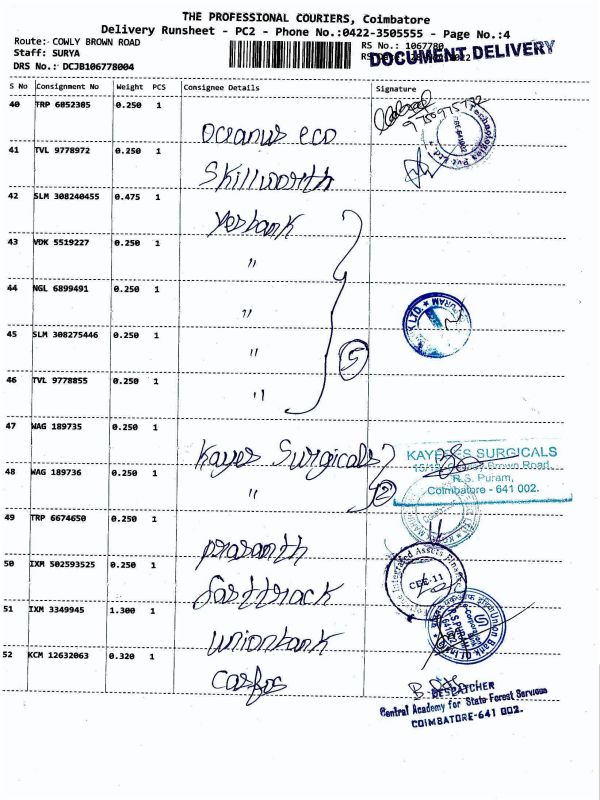 THE PROFESSIONAL COURIERS, Coimbatore
Delivery Runsheet - PC2 - Phone No.:0422-3505555 - Page No.:4
Route:- COWLY BROWN ROAD
Staff: SURYA
DRS No.: DCJB106778004
RS No.: 1067780
DOCUMENT DELIVERY
S No Consignment No Weight PCS Consignee Details Signature
40 TRP 6852385 0.250 1 Oceanus eco
9750975732
Technologies Pvt Ltd.
41 TVL 9778972 0.250 1 Skillworth
42 SLM 308240455 0.475 1 Yesbank
43 VDK 5519227 0.250 1 "
44 NGL 6899491 0.250 1 "
45 SLM 308275446 0.250 1 "
5
46 TVL 9778855 0.250 1 "
47 WAG 189735 0.250 1 Kayes Surgicals
KAYEES SURGICALS
Brown Road,
R.S. Puram,
Coimbatore - 641 002.
48 WAG 189736 0.250 1 "
2
49 TRP 6674650 0.250 1 prasanth
50 IXM 502593525 0.250 1 fasttrack
Integrated Assets Finance
CBE-11
51 IXM 3349945 1.300 1 unionbank
Union Bank of India
R S PURAM
52 KCM 12632063 0.320 1 Casfos
DESPATCHER
Central Academy for State Forest Services
COIMBATORE-641 002.